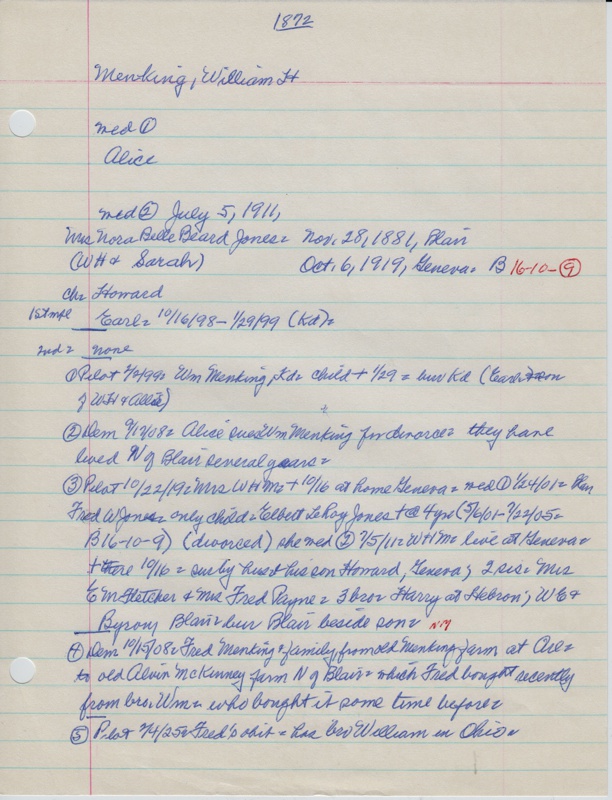 1872
Menking, William H
med ①
Alice
med ② July 5, 1911,
Mrs Nora Belle Beard Jones = Nov. 28, 1881, Blair
(WH & Sarah) Oct. 6, 1919, Geneva = B 16-10-⑨
ch = Howard
1st mge Earl = 10/16/98 - 1/29/99 (Kd) =
2nd = none
① Pilot 2/2/99 = Wm Menking, Kd = child + 1/29 = bur Kd (Earl = son
of WH & Allie)
② Dem 9/17/08 = Alice sues Wm Menking for divorce = they have
lived N of Blair several years =
③ Pilot 10/22/19 = Mrs WH M = + 10/16 at home Geneva = med ① 1/24/01 = Blair
Fred W Jones = only child = Elbert LeRoy Jones + @ 4 yrs (5/6/01 - 7/22/05 =
B 16-10-9) (divorced) she med ② 7/5/11 = WHM = live at Geneva =
+ there 10/16 = sur by husb & his son Howard, Geneva; 2 sis = Mrs
E M Fletcher & Mrs Fred Payne = 3 bro = Harry at Hebron; W E &
Byron, Blair = bur Blair beside son = NM
④ Dem 10/15/08 = Fred Menking & family from old Menking farm at Ave =
to old Alvin McKinney farm N of Blair = which Fred bought recently
from bro. Wm = who bought it some time before =
⑤ Pilot 2/4/25 = Fred's obit = has bro William in Ohio =